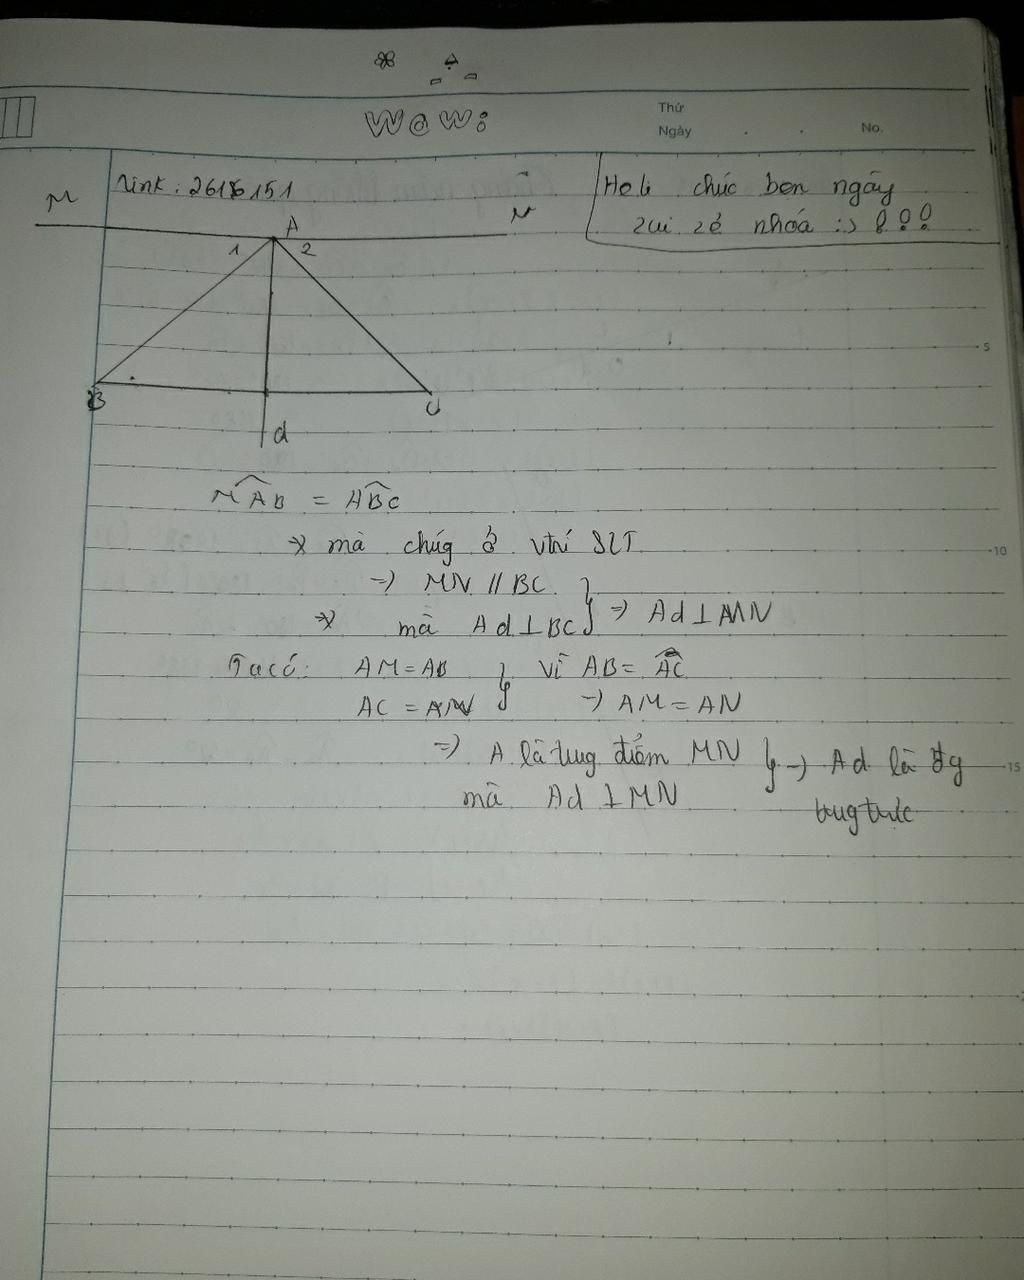 WOW:
Thứ
Ngày . . No.
Nink: 2618151
Holi chúc bạn ngày
zui zẻ nhoá :> !!!
M
A
N
1 2
B
C
d
5
MAB = ABC
mà chúg ở vtrí SLT
10
=> MN // BC
mà Ad ⊥ BC } => Ad ⊥ MN
Ta có: AM = AB } vì AB = AC
AC = AN => AM = AN
=> A là tug điểm MN } => Ad là đg
15
mà Ad ⊥ MN
tug trực